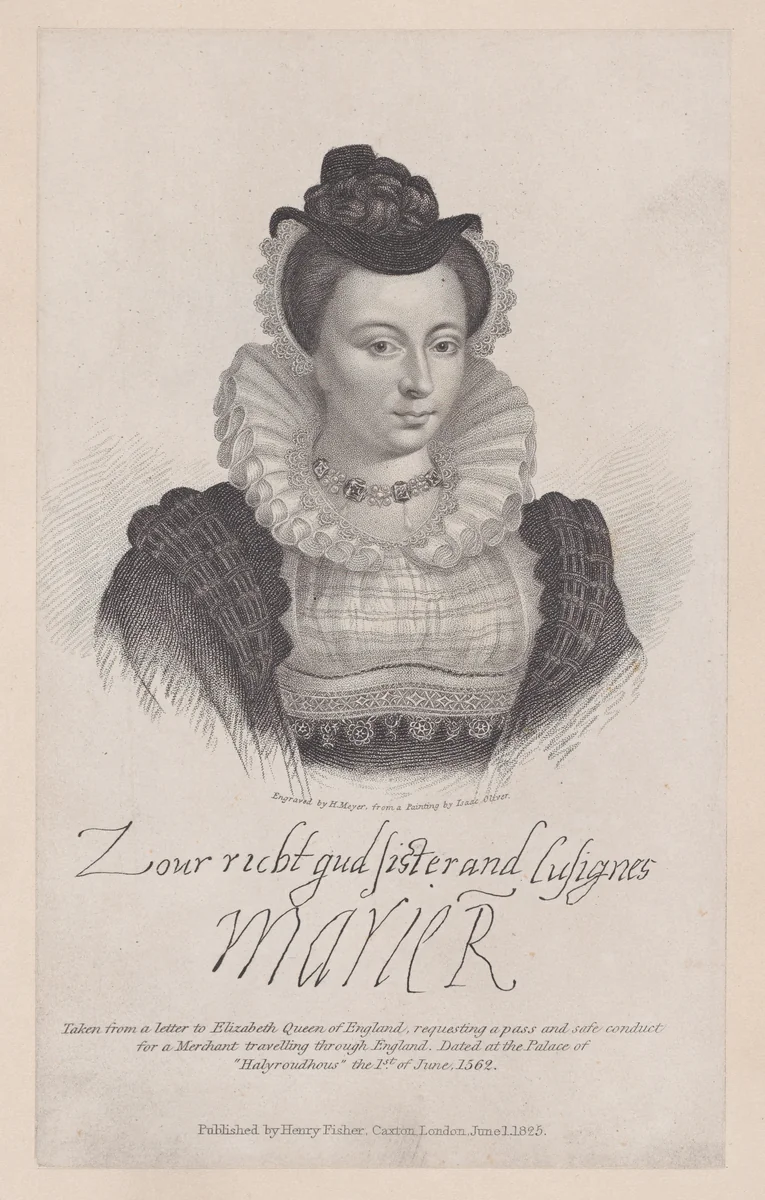 Engraved by H. Meyer, from a Painting by Isaac Oliver.
Zour richt gud sister and cusignes
Marie R
Taken from a letter to Elizabeth Queen of England, requesting a pass and safe conduct
for a Merchant travelling through England. Dated at the Palace of
"Halyroudhous" the 1st of June, 1562.
Published by Henry Fisher, Caxton, London, June 1. 1825.